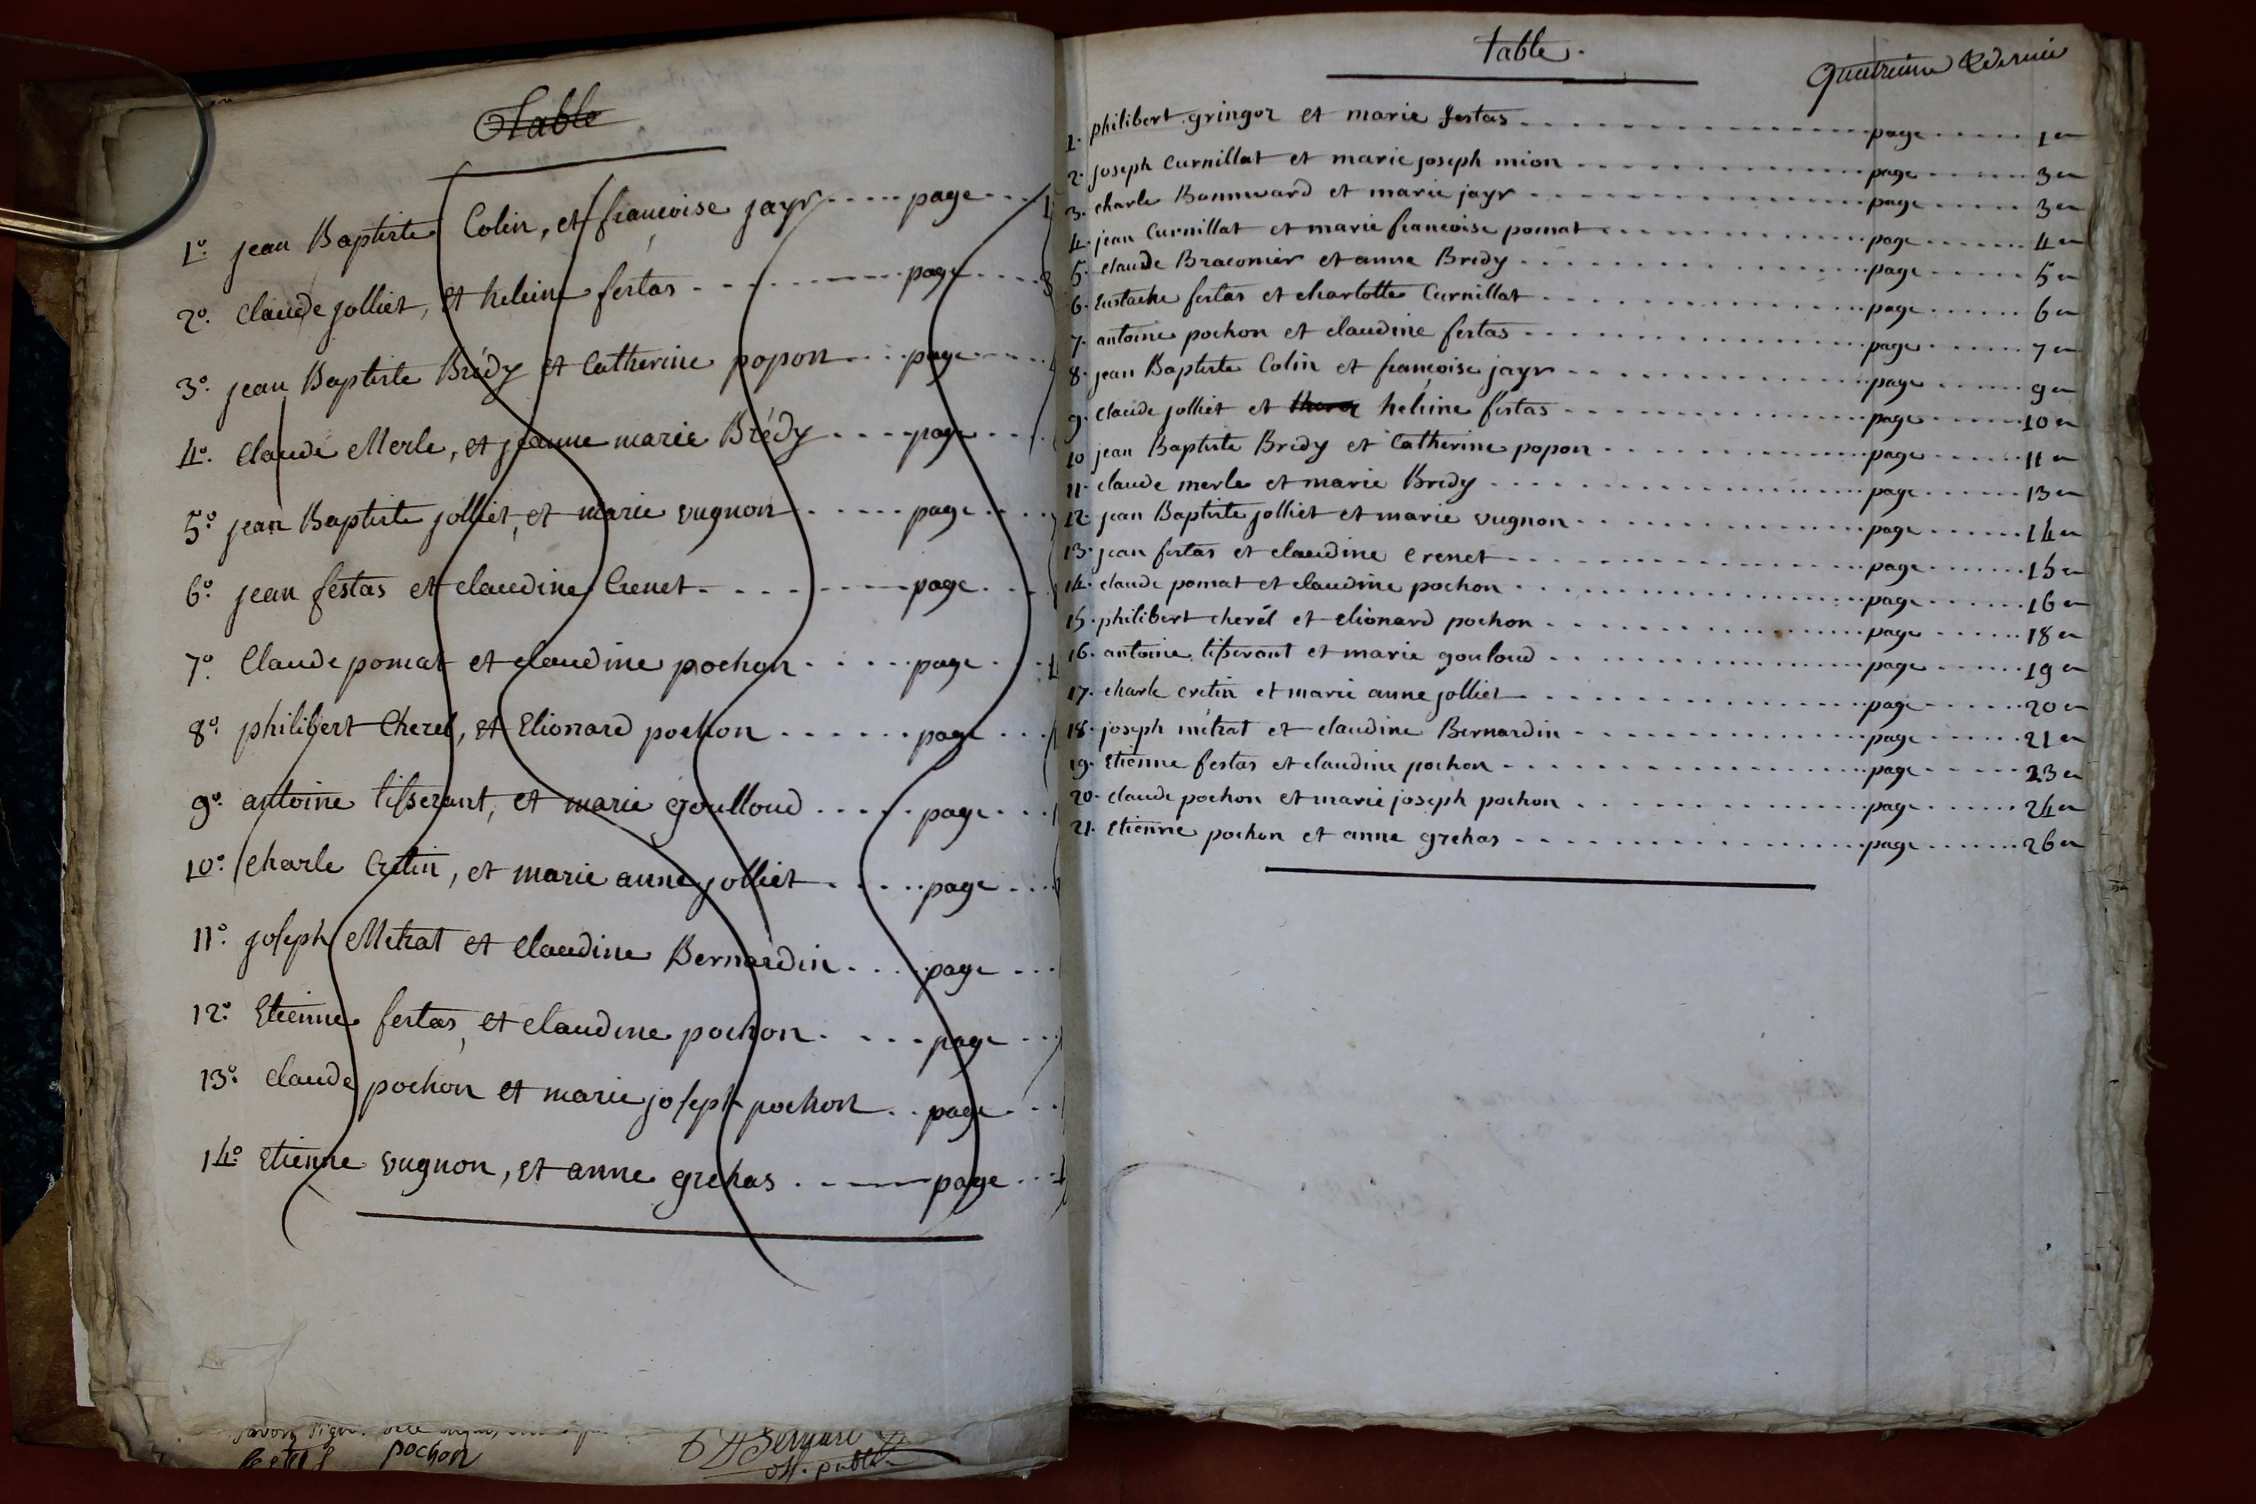 Table
1º. jean Baptiste Colin, et françoise jayr ..... page ....
2º. Claude jolliet, et heleine festas ........ page ....
3º. jean Baptiste Brédy et Catherine popon .... page ....
4º. Claude Merle, et jeanne marie Brédy .... page ...
5º. jean Baptiste jolliet, et marie vugnon ..... page ....
6º. jean festas et claudine Crenet ........ page ....
7º. Claude pomat et claudine pochon ..... page ....
8º. philibert Cherel, et Elionard pochon ...... page ...
9º. antoine tisserant, et marie goulloud ..... page ...
10º. Charle Cretin, et marie anne jolliet ..... page ...
11º. joseph Metrat et Claudine Bernardin .... page ...
12º. Etienne festas, et claudine pochon .... page ...
13º. Claude pochon et marie joseph pochon .. page ...
14º. Etienne vugnon, et anne grehas ...... page ...
pochon
off. public
table.
Quatrieme & dernier
1. philibert gringoz et marie festas ........ page ..... 1er
2. joseph Curnillat et marie joseph mion ........ page ..... 3e
3. charle Bonnward et marie jayr ........ page ..... 3e
4. jean Curnillat et marie francoise pomat ........ page ..... 4e
5. claude Braconier et anne Bredy ........ page ..... 5e
6. Eustache festas et charlotte Curnillat ........ page ..... 6e
7. antoine pochon et claudine festas ........ page ..... 7e
8. jean Baptiste Colin et françoise jayr ........ page ..... 9e
9. Claude jolliet et heleine festas ........ page ..... 10e
10 jean Baptiste Bredy et Catherine popon ........ page ..... 11e
11. claude merle et marie Bredy ........ page ..... 13e
12. jean Baptiste jolliet et marie vugnon ........ page ..... 14e
13. jean festas et claudine crenet ........ page ..... 15e
14. claude pomat et claudine pochon ........ page ..... 16e
15. philibert cherél et elionard pochon ........ page ..... 18e
16. antoine tisserant et marie gouloud ........ page ..... 19e
17. charle cretin et marie anne jolliet ........ page ..... 20e
18. joseph métrat et claudine Bernardin ........ page ..... 21e
19. Etienne festas et claudine pochon ........ page ..... 23e
20. claude pochon et marie joseph pochon ........ page ..... 24e
21. Etienne pochon et anne grehas ........ page ..... 26e